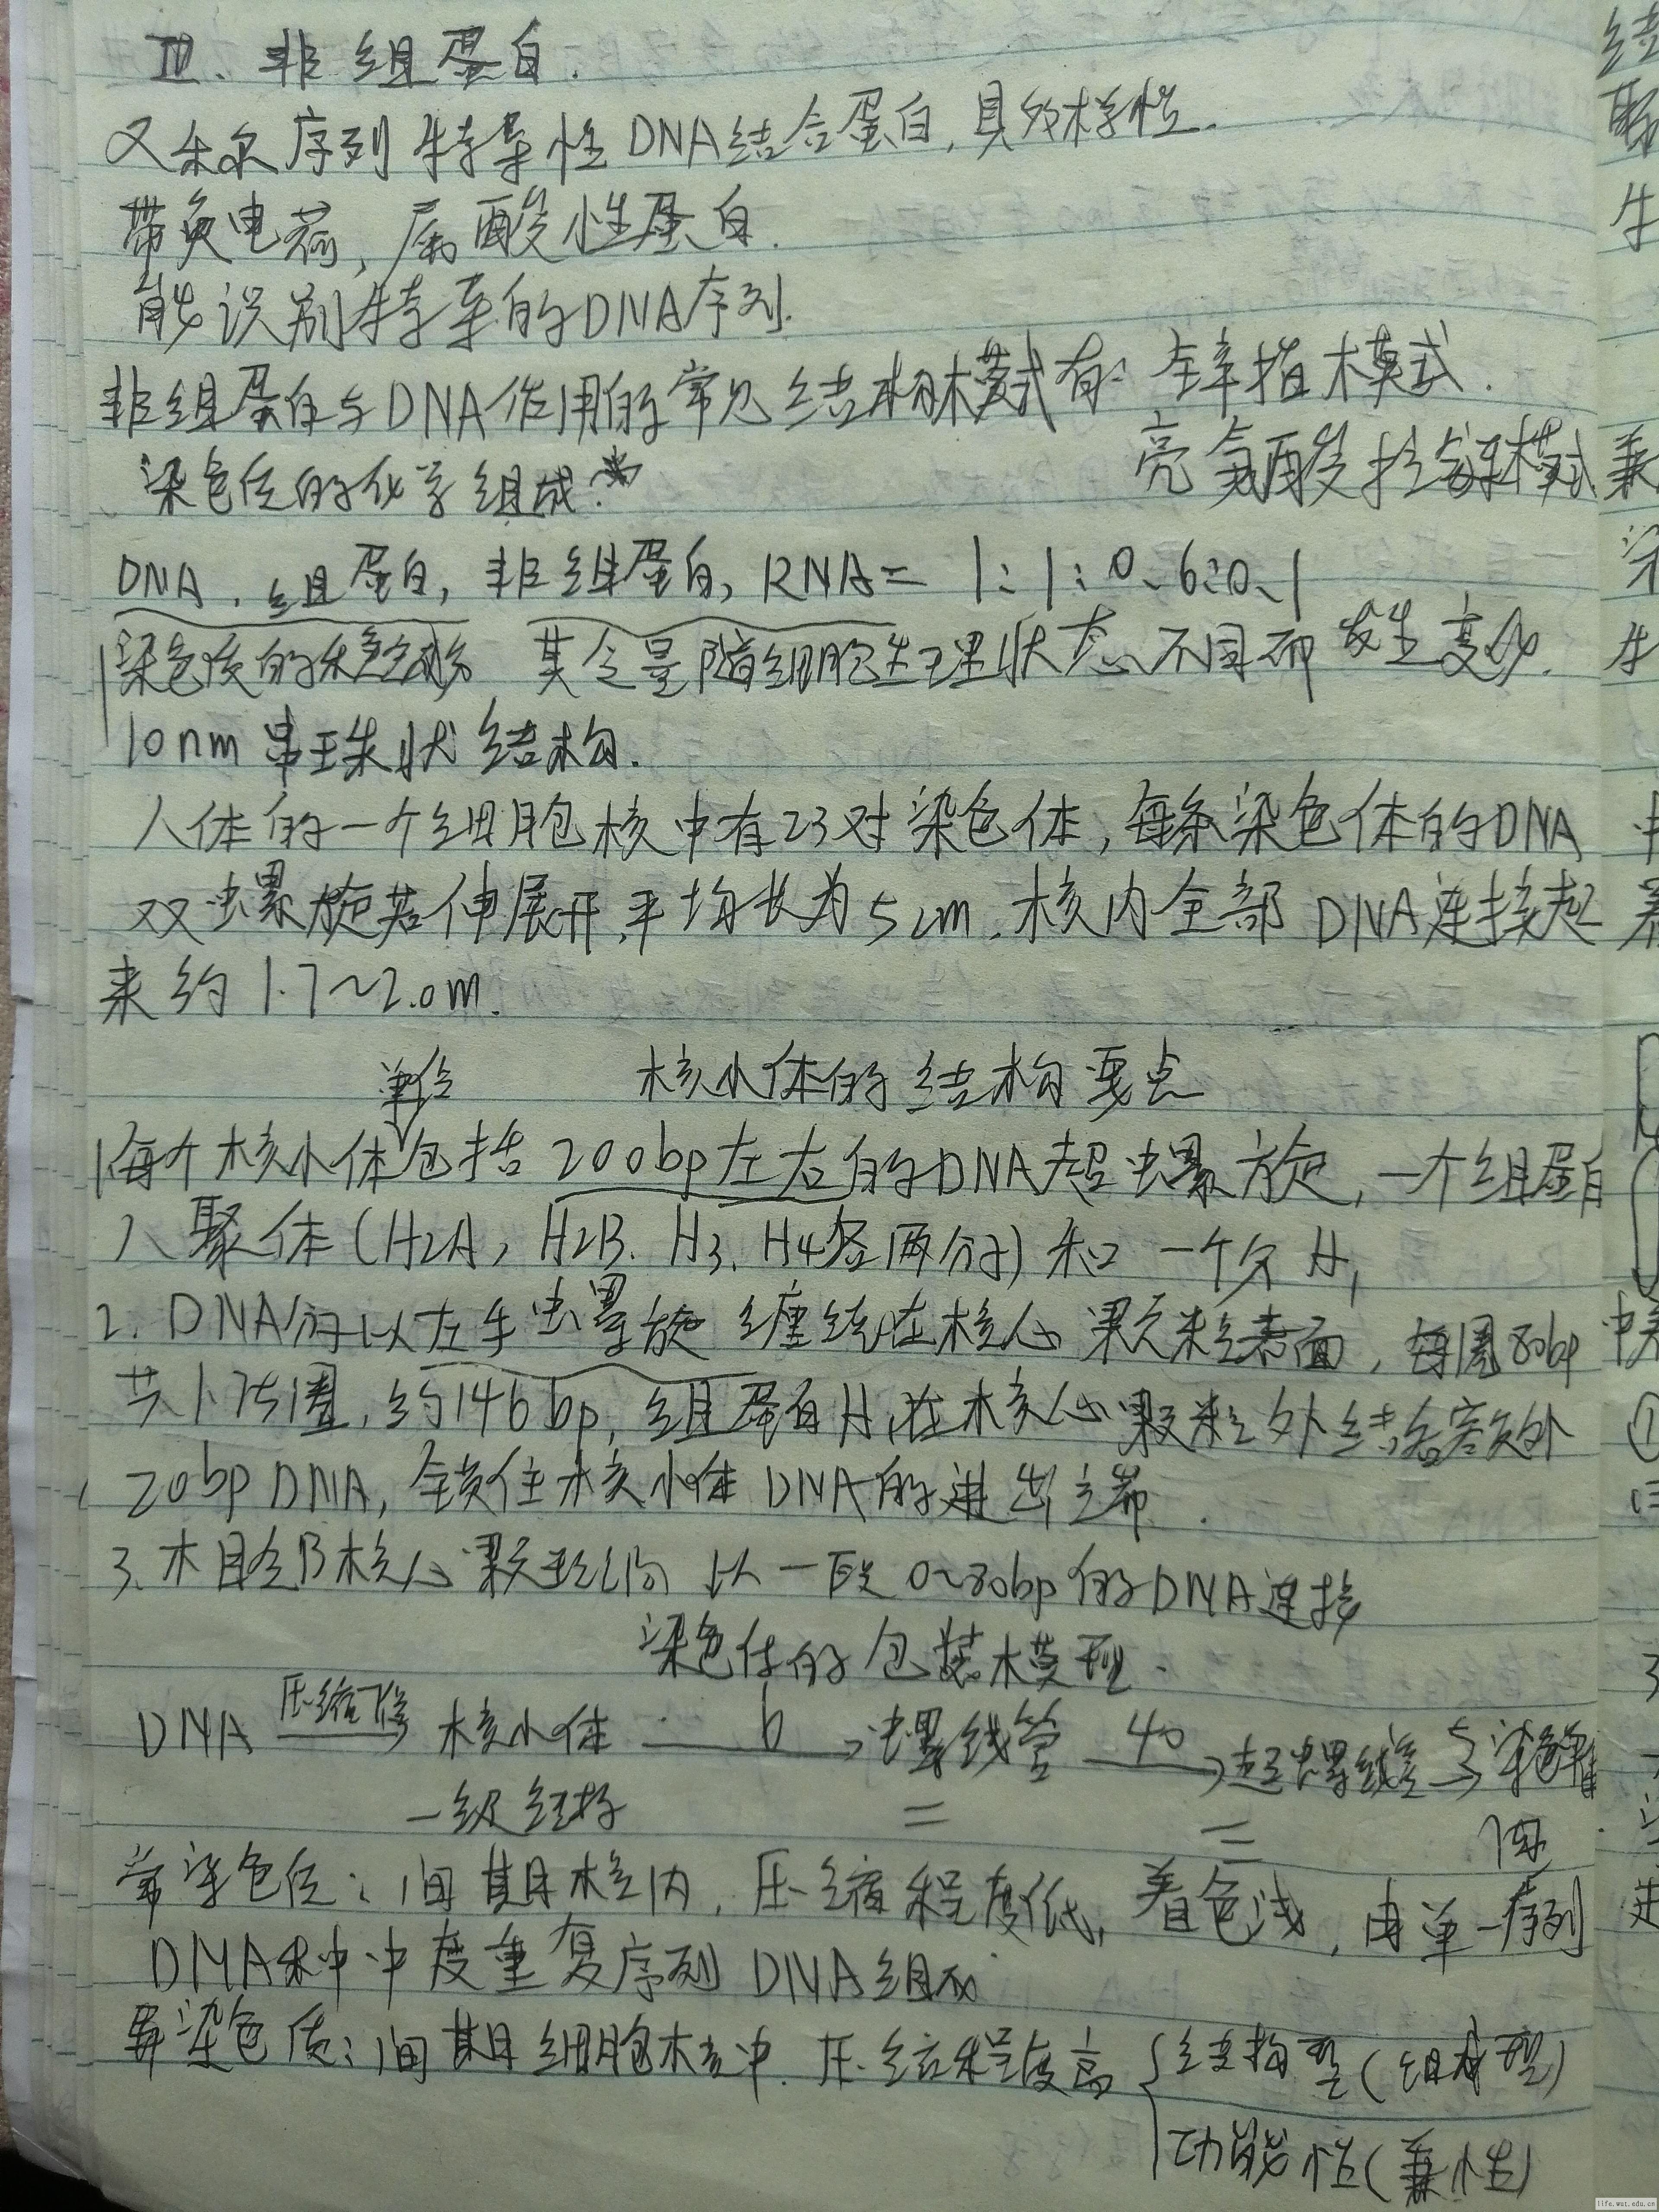 Ⅲ、非组蛋白.
又称 序列特异性DNA结合蛋白,具多样性.
带负电荷,属酸性蛋白.
能识别特异的DNA序列.
非组蛋白与DNA作用的常见结构模式有: 锌指模式.
亮氨酸拉链模式
染色质的化学组成:
DNA、组蛋白,非组蛋白,RNA= 1:1:0.6:0.1
染色质的稳定成分,其含量随细胞生理状态不同而发生变化.
10nm串珠状结构.
人体的一个细胞核中有23对染色体,每条染色体的DNA
双螺旋若伸展开,平均长为5cm.核内全部DNA连接起
来约1.7~2.0m.
核小体的结构要点
单位
1每个核小体包括200bp左右的DNA超螺旋,一个组蛋白
八聚体(H2A,H2B、H3、H4各两分子)和一个分H1
2.DNA分子以左手螺旋缠绕在核心颗粒表面,每圈80bp
共1.75圈,约146bp,组蛋白H1在核心颗粒外结合额外
20bpDNA,锁住核小体DNA的进出端.
3.相邻核心颗粒间以一段0~80bp的DNA连接
染色体的包装模型.
DNA 压缩7倍→ 核小体 6→ 螺线管 40→ 超螺线管 5→ 染色单体
一级结构 二 三 四
常染色质:间期核内,压缩程度低,着色浅,由单一序列
DNA和中度重复序列DNA组成
异染色质:间期细胞核中.压缩程度高{结构型(组成型)
功能性(兼性)
life.wut.edu.cn